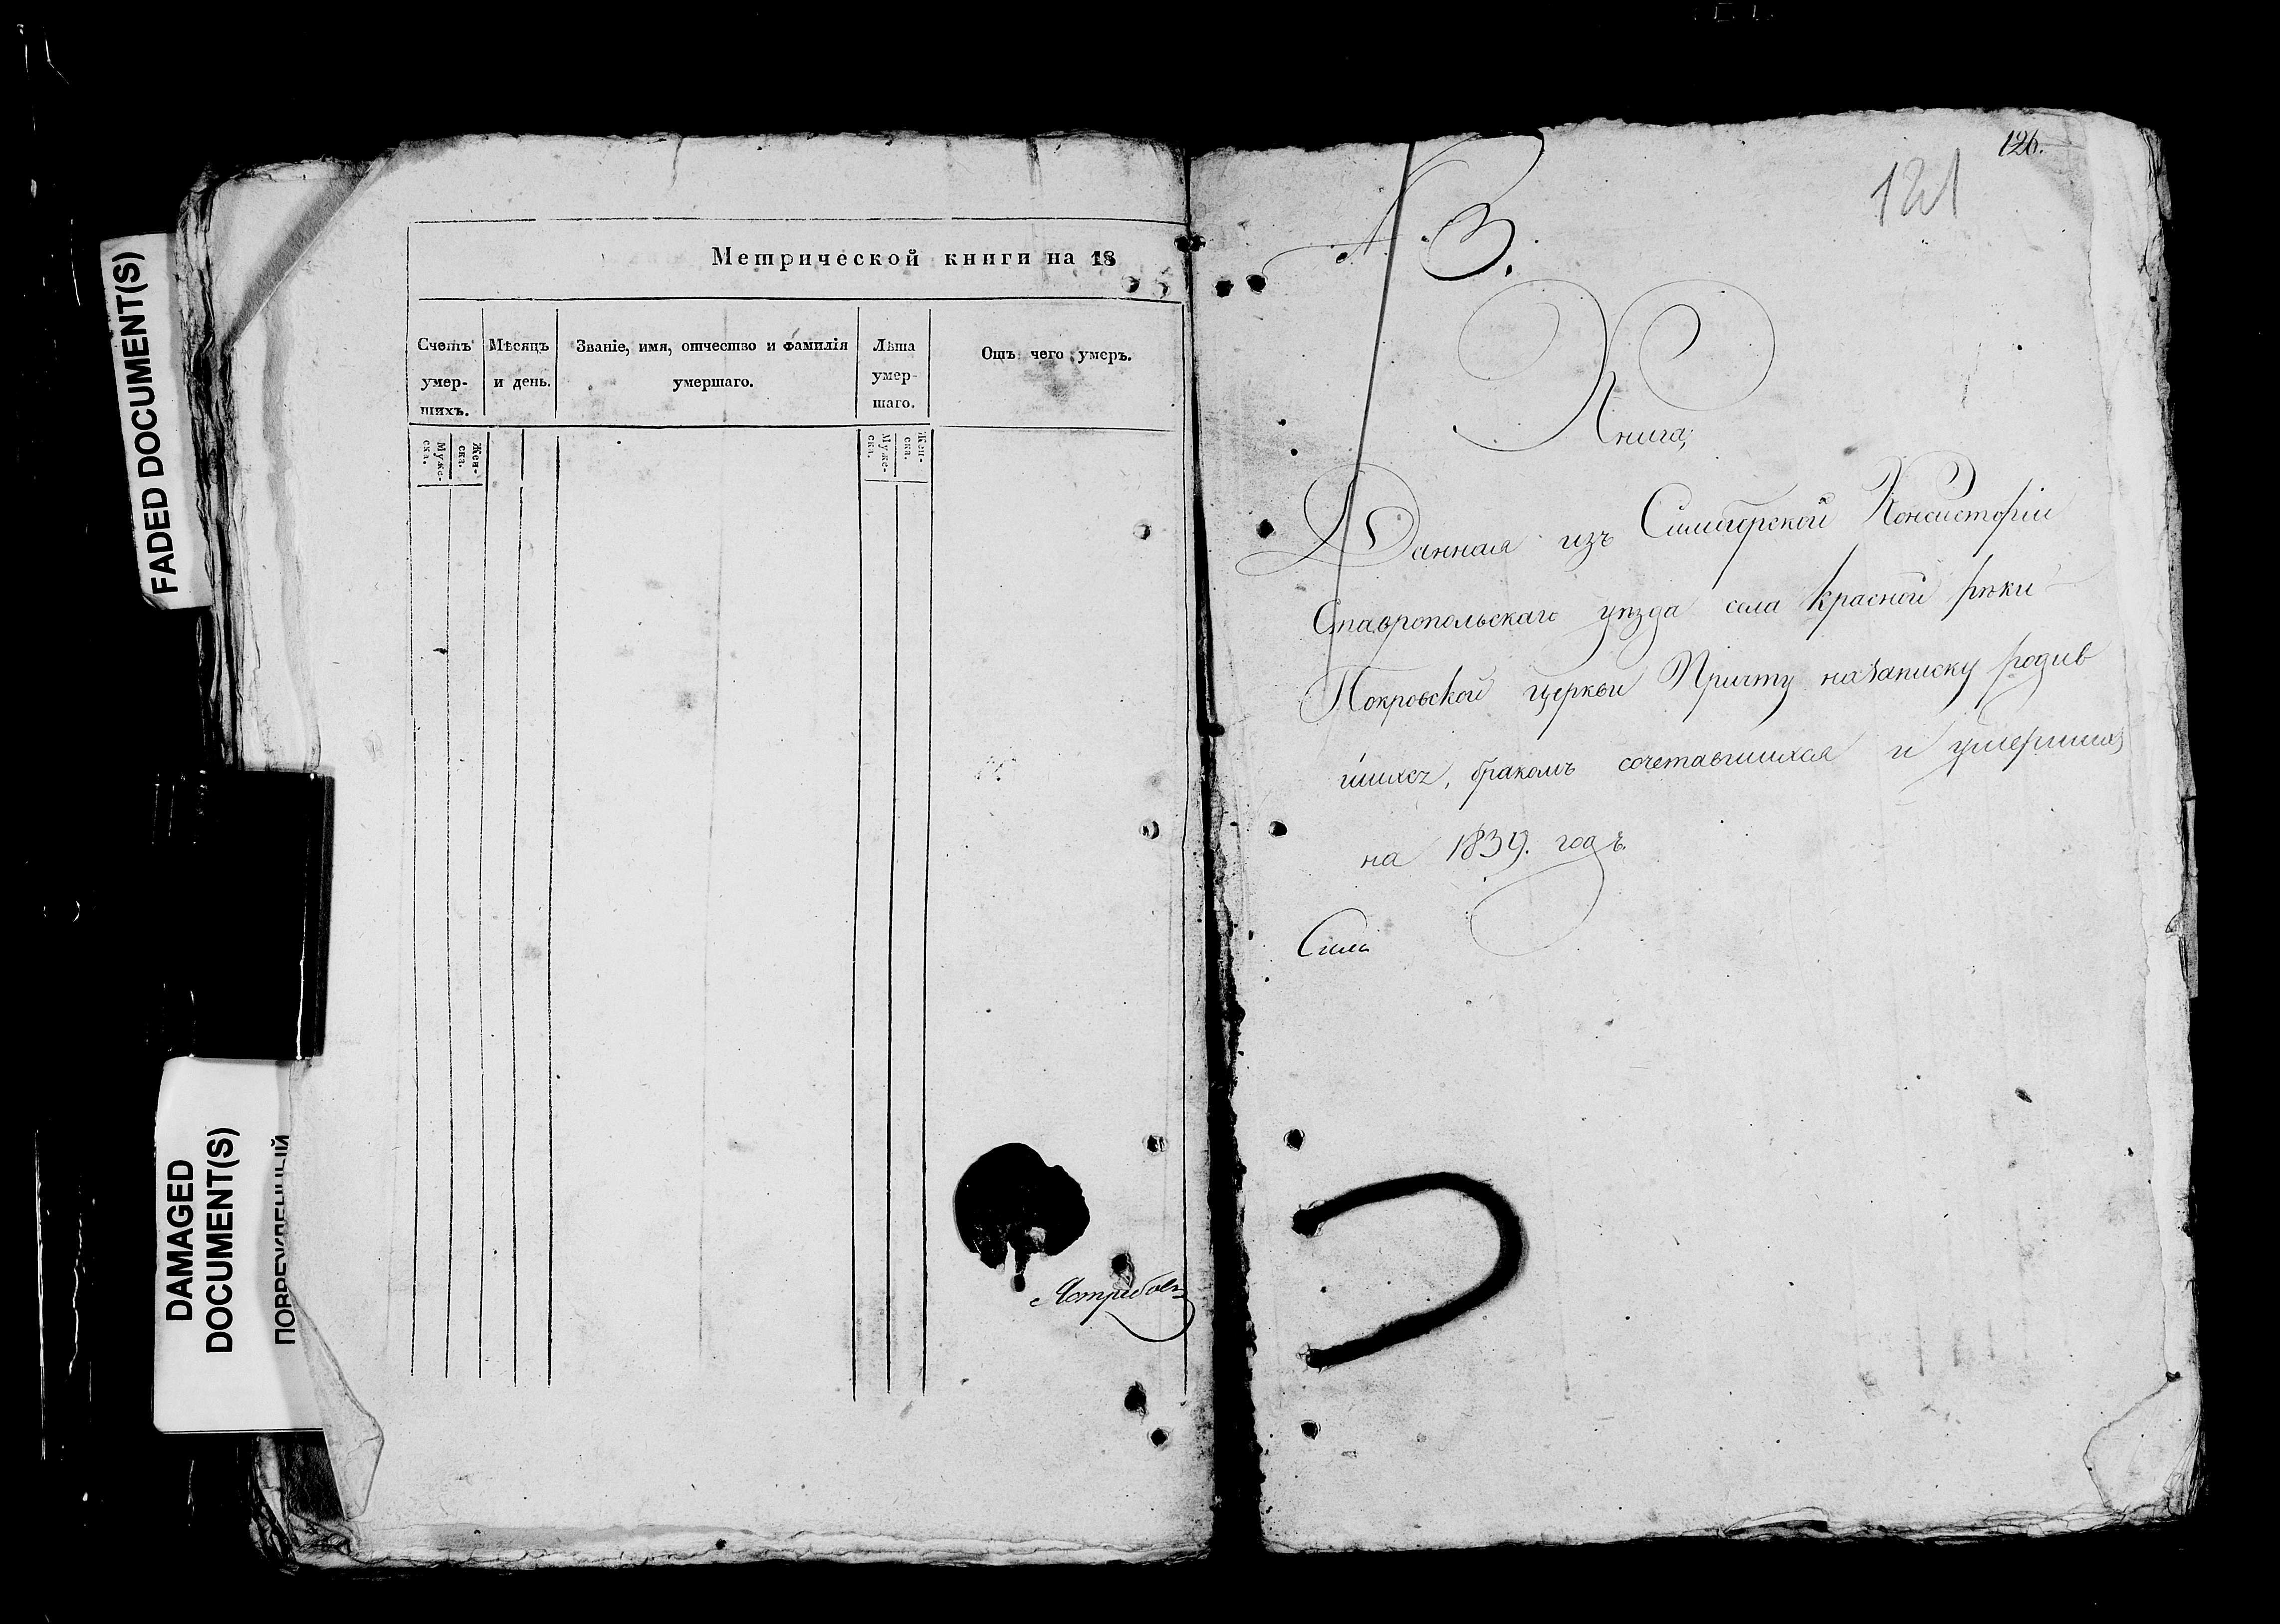 FADED DOCUMENT(S)
DAMAGED
DOCUMENT(S)
ПОВРЕЖДЕННЫЙ
Метрической книги на 18
Счетъ умер-шихъ.
Мѣсяцъ и день.
Званіе, имя, отчество и фамилія умершаго.
Лѣта умер-шаго.
Отъ чего умеръ.
Муже-ска.
Жен-ска.
Муже-ска.
Жен-ска.
Ястребовъ
126.
121
№ 3.
Книга,
Данная изъ Симбирской Консисторіи
Ставропольскаго уѣзда села Красной рѣки
Покровской церкви Причту на записку родив
шихся, бракомъ сочетавшихся и умершихъ
на 1839. годъ.